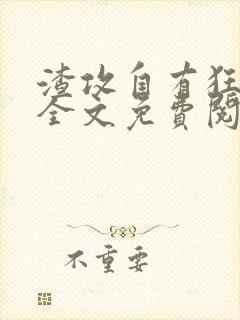 渣攻自有狂
全文免費閱
不重要